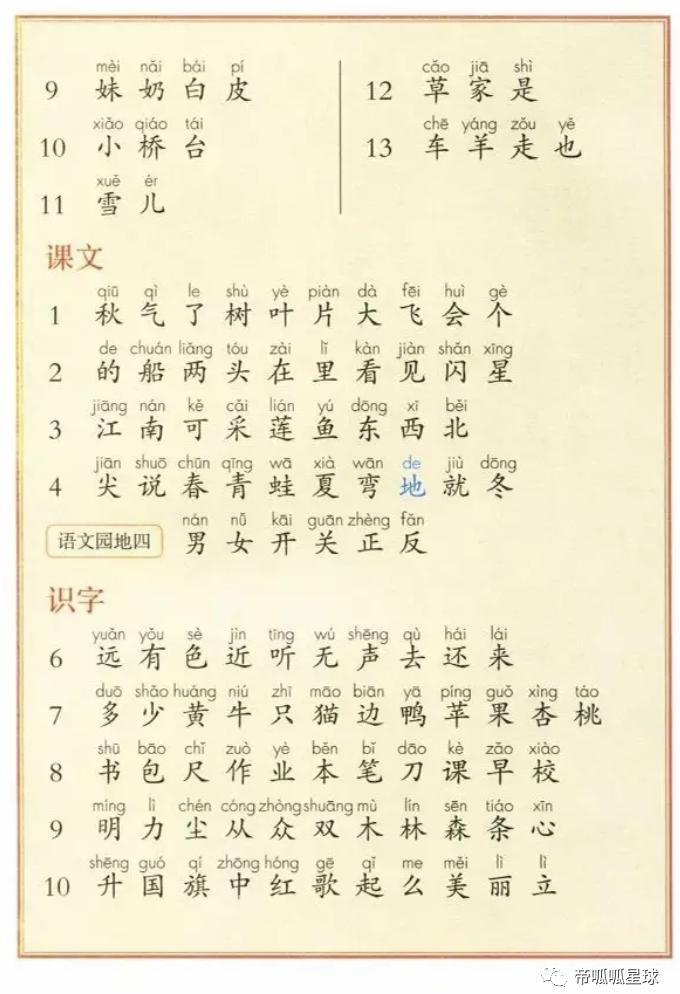 mèi nǎi bái pí
9 妹 奶 白 皮
xiǎo qiáo tái
10 小 桥 台
xuě ér
11 雪 儿
cǎo jiā shì
12 草 家 是
chē yáng zǒu yě
13 车 羊 走 也
课文
qiū qì le shù yè piàn dà fēi huì gè
1 秋 气 了 树 叶 片 大 飞 会 个
de chuán liǎng tóu zài lǐ kàn jiàn shǎn xīng
2 的 船 两 头 在 里 看 见 闪 星
jiāng nán kě cǎi lián yú dōng xī běi
3 江 南 可 采 莲 鱼 东 西 北
jiān shuō chūn qīng wā xià wān de jiù dōng
4 尖 说 春 青 蛙 夏 弯 地 就 冬
nán nǚ kāi guān zhèng fǎn
语文园地四 男 女 开 关 正 反
识字
yuǎn yǒu sè jìn tīng wú shēng qù hái lái
6 远 有 色 近 听 无 声 去 还 来
duō shǎo huáng niú zhī māo biān yā píng guǒ xìng táo
7 多 少 黄 牛 只 猫 边 鸭 苹 果 杏 桃
shū bāo chǐ zuò yè běn bǐ dāo kè zǎo xiào
8 书 包 尺 作 业 本 笔 刀 课 早 校
míng lì chén cóng zhòng shuāng mù lín sēn tiáo xīn
9 明 力 尘 从 众 双 木 林 森 条 心
shēng guó qí zhōng hóng gē qǐ me měi lì lì
10 升 国 旗 中 红 歌 起 么 美 丽 立
帝呱呱星球